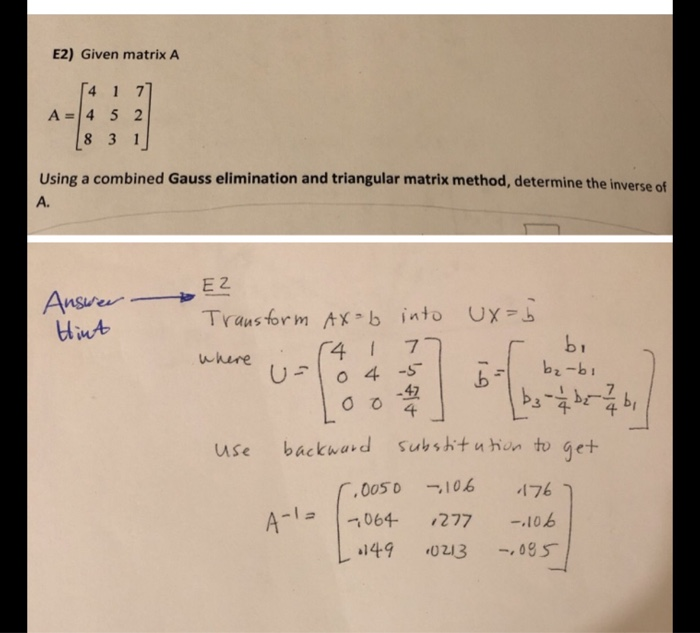 E2) Given matrix A
A = [4 1 7
4 5 2
8 3 1]
Using a combined Gauss elimination and triangular matrix method, determine the inverse of
A.
Answer Hint → E2
Transform AX=b into UX=b̄
where U = [4 1 7
0 4 -5
0 0 -47/4]
b̄ = [b₁
b₂-b₁
b₃-1/4 b₂-7/4 b₁]
use backward substitution to get
A-1= [.0050 -.106 .176
-.064 .277 -.106
.149 .0213 -.085]